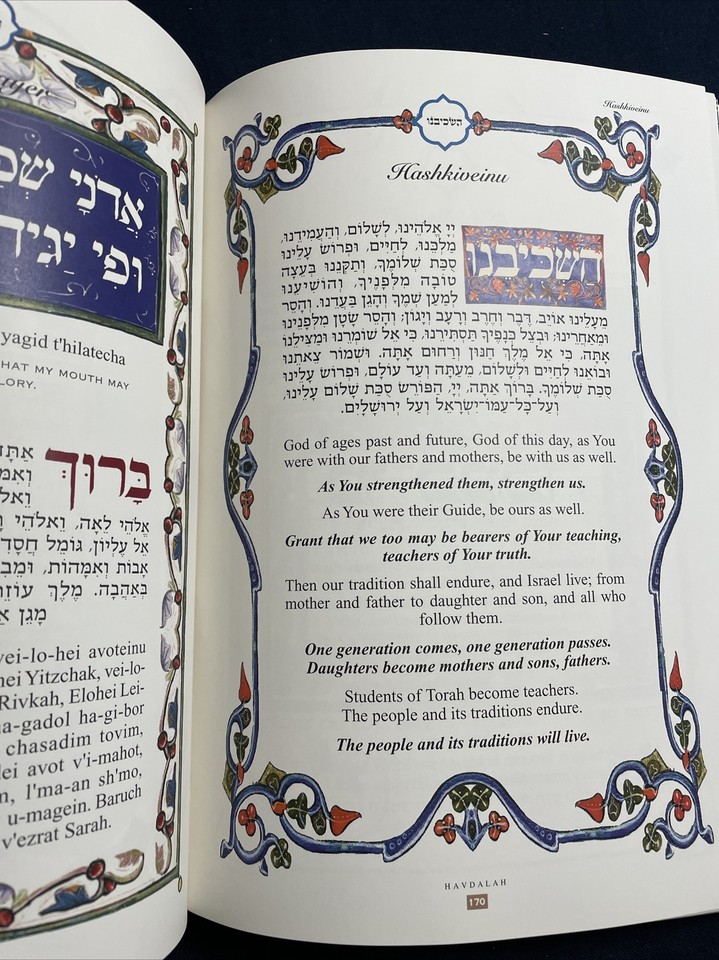 אֲדֹנָי
וּפִי יַגִּיד
yagid t'hilatecha
MY MOUTH MAY
בָּרוּךְ
אֱלֹהֵי לֵאָה, וֵאלֹהֵי
אֵל עֶלְיוֹן, גּוֹמֵל
אָבוֹת וְאִמָּהוֹת,
בְּאַהֲבָה. מֶלֶךְ עוֹזֵר
מָגֵן
vei-lo-hei avoteinu
Yitzchak, vei-lo-
Rivkah, Elohei Lei-
ha-gi-bor
chasadim tovim,
avot v'i-mahot,
l'ma-an sh'mo,
u-magein. Baruch
v'ezrat Sarah.
Hashkiveinu
הַשְׁכִּיבֵנוּ
Hashkiveinu
הַשְׁכִּיבֵנוּ יְיָ אֱלֹהֵינוּ, לְשָׁלוֹם, וְהַעֲמִידֵנוּ,
מַלְכֵּנוּ, לְחַיִּים, וּפְרוֹשׂ עָלֵינוּ
סֻכַּת שְׁלוֹמֶךָ, וְתַקְּנֵנוּ בְּעֵצָה
טוֹבָה מִלְּפָנֶיךָ, וְהוֹשִׁיעֵנוּ
לְמַעַן שְׁמֶךָ וְהָגֵן בַּעֲדֵנוּ. וְהָסֵר
מֵעָלֵינוּ אוֹיֵב, דֶּבֶר וְחֶרֶב וְרָעָב וְיָגוֹן; וְהָסֵר שָׂטָן מִלְּפָנֵינוּ
וּמֵאַחֲרֵינוּ; וּבְצֵל כְּנָפֶיךָ תַּסְתִּירֵנוּ, כִּי אֵל שׁוֹמְרֵנוּ וּמַצִּילֵנוּ
אָתָּה, כִּי אֵל מֶלֶךְ חַנּוּן וְרַחוּם אָתָּה. וּשְׁמוֹר צֵאתֵנוּ
וּבוֹאֵנוּ לְחַיִּים וּלְשָׁלוֹם, מֵעַתָּה וְעַד עוֹלָם, וּפְרוֹשׂ עָלֵינוּ
סֻכַּת שְׁלוֹמֶךָ. בָּרוּךְ אַתָּה, יְיָ, הַפּוֹרֵשׂ סֻכַּת שָׁלוֹם עָלֵינוּ,
וְעַל־כָּל־עַמּוֹ־יִשְׂרָאֵל וְעַל יְרוּשָׁלָיִם.
God of ages past and future, God of this day, as You
were with our fathers and mothers, be with us as well.
As You strengthened them, strengthen us.
As You were their Guide, be ours as well.
Grant that we too may be bearers of Your teaching,
teachers of Your truth.
Then our tradition shall endure, and Israel live; from
mother and father to daughter and son, and all who
follow them.
One generation comes, one generation passes.
Daughters become mothers and sons, fathers.
Students of Torah become teachers.
The people and its traditions endure.
The people and its traditions will live.
HAVDALAH
170